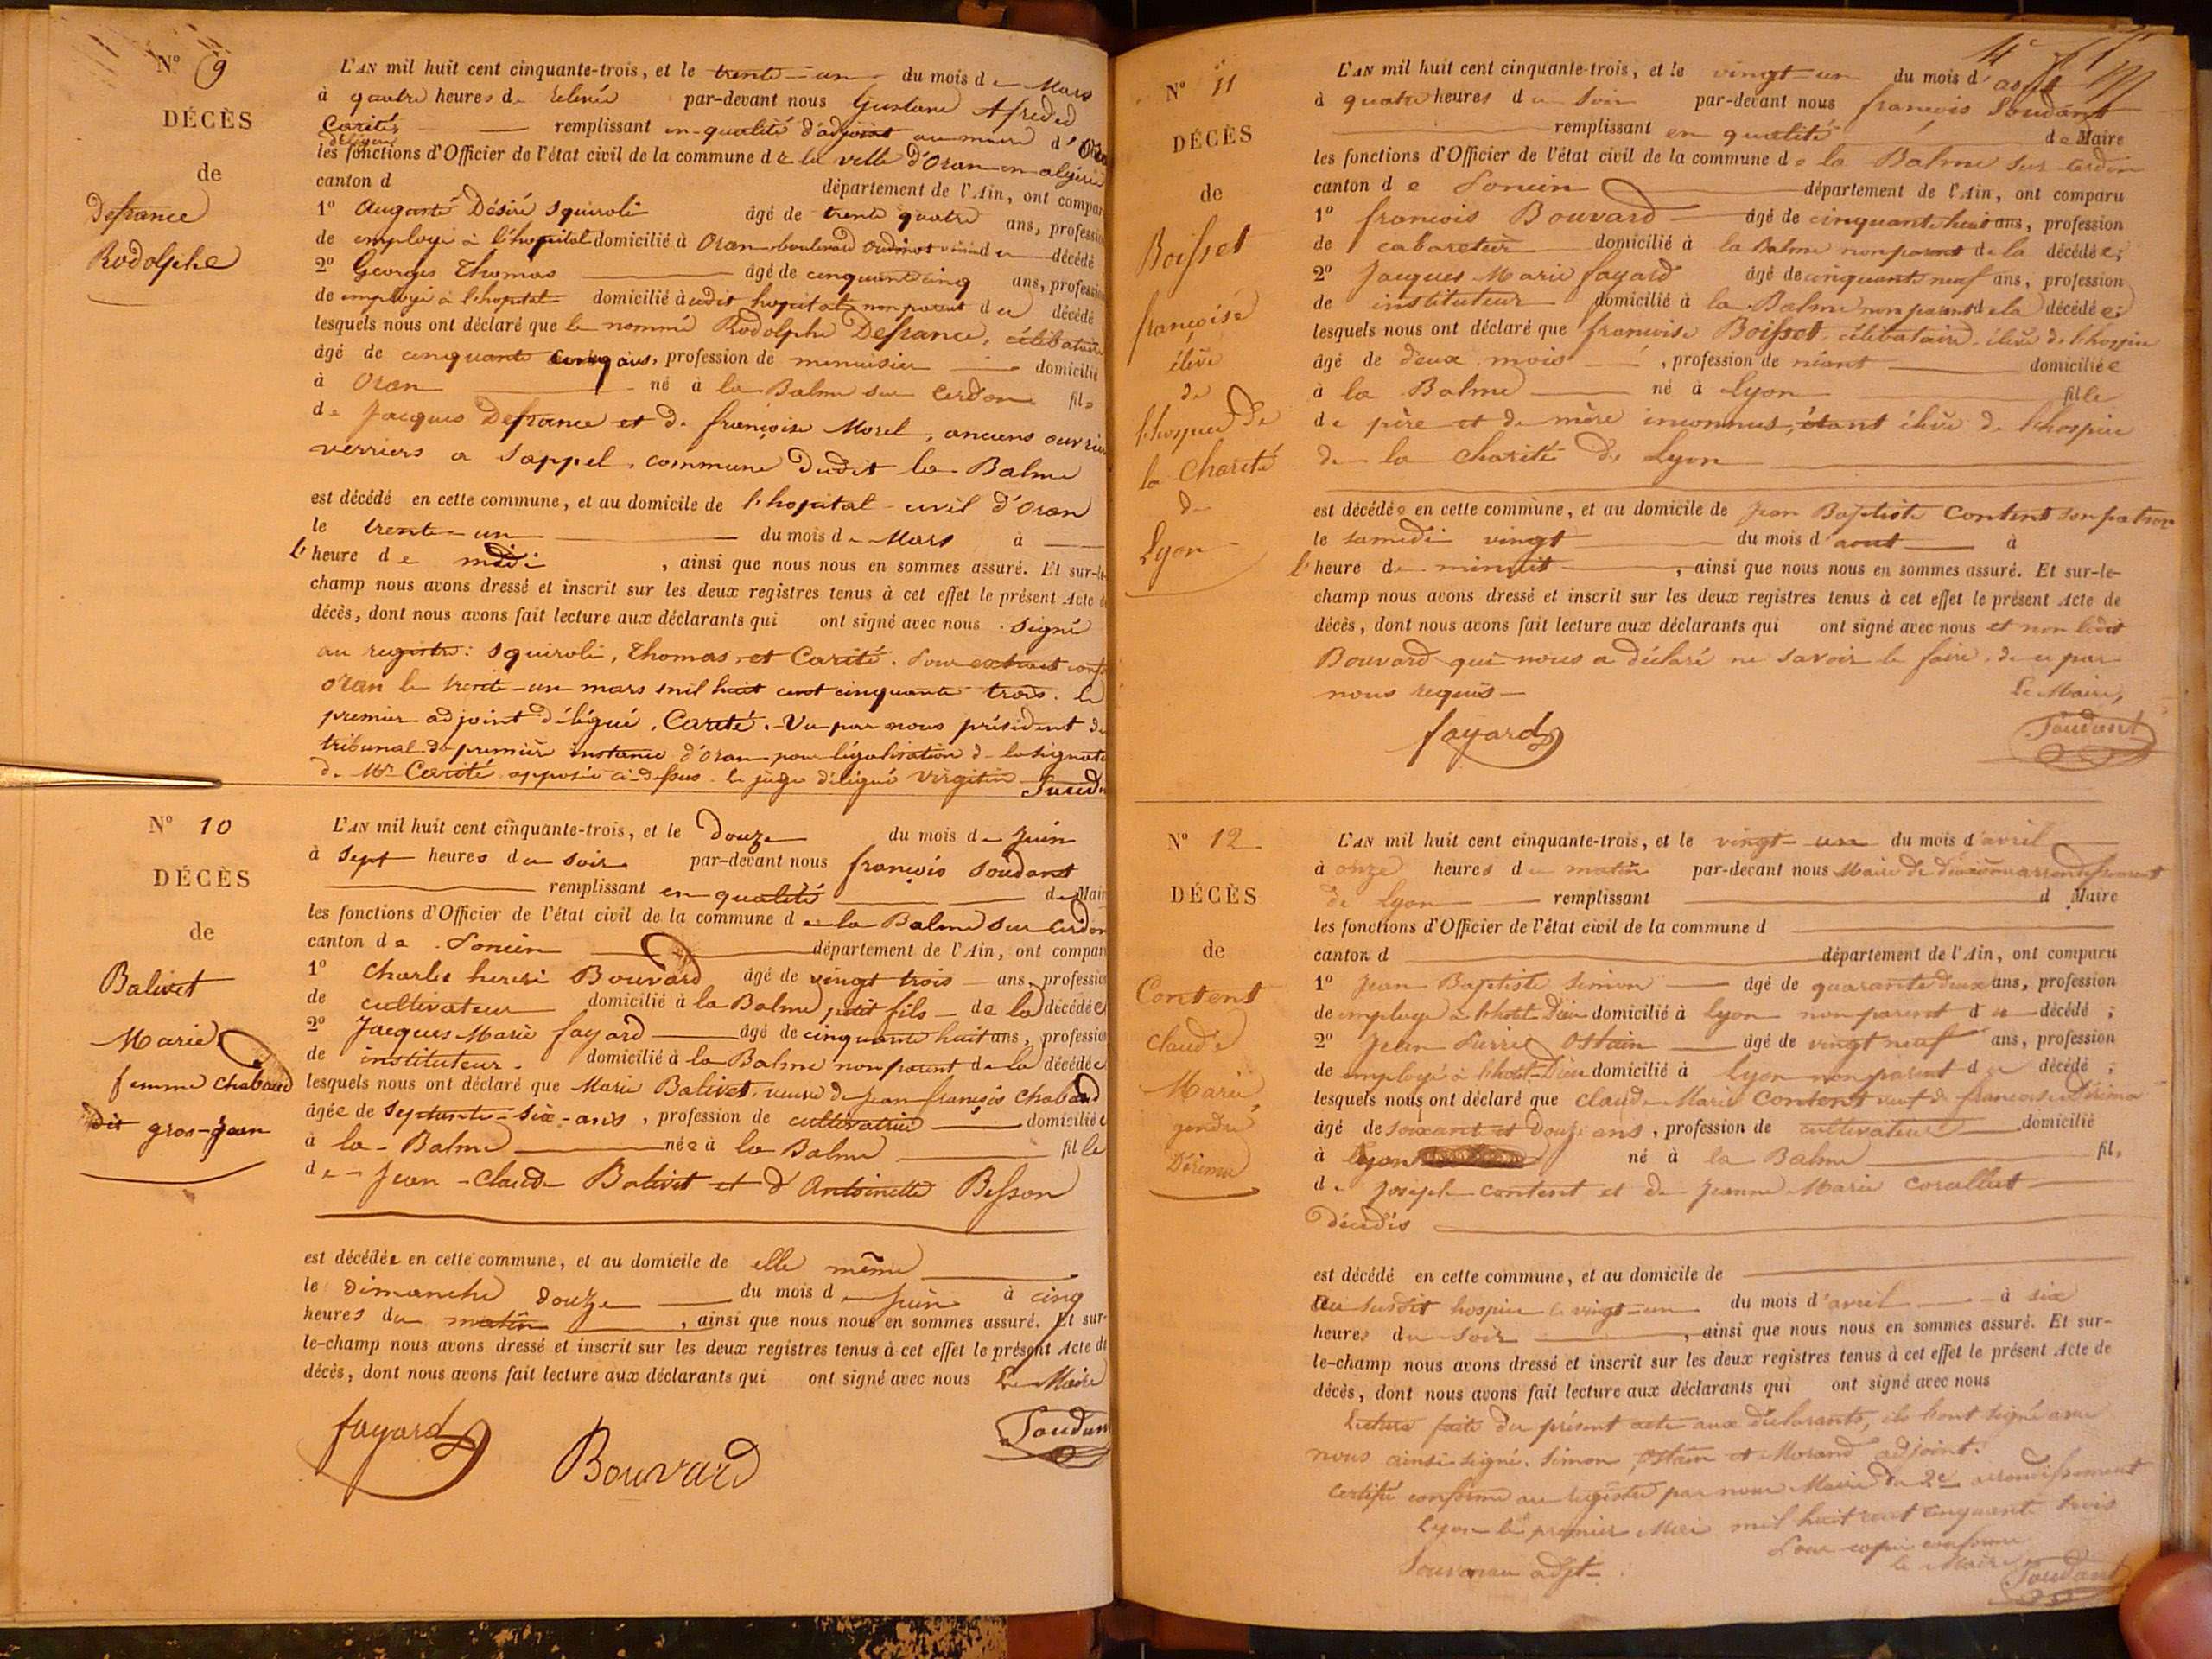 Nº 9
DÉCÈS
de
Defrance
Rodolphe
L'AN mil huit cent cinquante-trois, et le trente-un du mois de Mars
à quatre heures de relevée par-devant nous Gustave Alfred
Carité remplissant en qualité d'adjoint au maire d'Oran
délégué
les fonctions d'Officier de l'état civil de la commune de la ville d'Oran en algérie
canton d département de l'Ain, ont compar
1º Auguste Désiré Squiroli âgé de trente quatre ans, profession
de employé à l'hopital domicilié à Oran boulevard Oudinot voisin du décédé
2º Georges Thomas âgé de cinquante cinq ans, profession
de employé à l'hopital domicilié audit hopital non parent du décédé
lesquels nous ont déclaré que le nommé Rodolphe Defrance, célibataire
âgé de cinquante cinq ans, profession de menuisier domicilié
à Oran né à la Balme sur Cerdon fils
de Jacques Defrance et de françoise Morel, anciens ouvriers
verriers a Sappel, commune dudit la Balme
est décédé en cette commune, et au domicile de l'hopital civil d'Oran
le trente-un du mois de Mars à
l'heure de midi, ainsi que nous nous en sommes assuré. Et sur-le-
champ nous avons dressé et inscrit sur les deux registres tenus à cet effet le présent Acte de
décès, dont nous avons fait lecture aux déclarants qui ont signé avec nous. signé
au registre: Squiroli, Thomas, et Carité. Pour extrait conf
Oran le trente-un mars mil huit cent cinquante trois. le
premier adjoint délégué, Carité. Vu par nous président du
tribunal de première instance d'Oran pour légalisation de la signature
de Mr Carité apposée ci-dessus. le juge délégué
Nº 10
DÉCÈS
de
Balivet
Marie
femme Chaband
dit gros-Jean
L'AN mil huit cent cinquante-trois, et le douze du mois de Juin
à sept heures du soir par-devant nous françois Soudant
remplissant en qualité de Maire
les fonctions d'Officier de l'état civil de la commune de la Balme sur Cerdon
canton de Poncin département de l'Ain, ont compar
1º Charles henri Bouvard âgé de vingt trois ans, profession
de cultivateur domicilié à la Balme petit fils de la décédée
2º Jacques Marie fayard âgé de cinquante huit ans, profession
de instituteur. domicilié à la Balme non parent de la décédée
lesquels nous ont déclaré que Marie Balivet, veuve de Jean françois Chaband
âgée de septante-six-ans, profession de cultivatrice domiciliée
à la Balme née à la Balme fille
de Jean-Claude Balivet et d'Antoinette Besson
est décédée en cette commune, et au domicile de elle même
le dimanche douze du mois de Juin à cinq
heures du matin, ainsi que nous nous en sommes assuré. Et sur-
le-champ nous avons dressé et inscrit sur les deux registres tenus à cet effet le présent Acte de
décès, dont nous avons fait lecture aux déclarants qui ont signé avec nous Le Maire
fayard
Bouvard
Soudant
Nº 11
DÉCÈS
de
Boisset
françoise
élève
de
l'hospice de
la Charité
de
Lyon
L'AN mil huit cent cinquante-trois, et le vingt-un du mois d'août
à quatre heures du soir par-devant nous françois Soudant
remplissant en qualité de Maire
les fonctions d'Officier de l'état civil de la commune de la Balme sur Cerdon
canton de Poncin département de l'Ain, ont comparu
1º françois Bouvard âgé de cinquante huit ans, profession
de cabaretier domicilié à la Balme non parent de la décédée;
2º Jacques Marie fayard âgé de cinquante neuf ans, profession
de instituteur domicilié à la Balme non parent de la décédée;
lesquels nous ont déclaré que françoise Boisset, célibataire, élève de l'hospice
âgé de deux mois, profession de néant domiciliée
à la Balme né à Lyon fille
de père et de mère inconnus, étant élève de l'hospice
de la charité de Lyon
est décédée en cette commune, et au domicile de Jean Baptiste Content son patron
le samedi vingt du mois d'aout à
l'heure de minuit, ainsi que nous nous en sommes assuré. Et sur-le-
champ nous avons dressé et inscrit sur les deux registres tenus à cet effet le présent Acte de
décès, dont nous avons fait lecture aux déclarants qui ont signé avec nous et non ledit
Bouvard qui nous a déclaré ne savoir le faire, de ce par
nous requis
Le Maire,
fayard
Soudant
Nº 12
DÉCÈS
de
Content
Claude
Marie,
gendre
L'AN mil huit cent cinquante-trois, et le vingt-un du mois d'avril
à onze heures du matin par-devant nous Maire du deuxième arrondissement
de Lyon remplissant d Maire
les fonctions d'Officier de l'état civil de la commune d
canton d département de l'Ain, ont comparu
1º Jean Baptiste Simon âgé de quarante deux ans, profession
de employé à l'hotel Dieu domicilié à Lyon non parent du décédé;
2º Jean Pierre Ostain âgé de vingt neuf ans, profession
de employé à l'hotel-Dieu domicilié à Lyon non parent du décédé;
lesquels nous ont déclaré que Claude Marie Content veuf de françoise
âgé de soixante et douze ans, profession de cultivateur domicilié
à Lyon né à la Balme fils
de Joseph Content et de Jeanne Marie Corallut
décédés
est décédé en cette commune, et au domicile de
Au susdit hospice le vingt-un du mois d'avril à six
heures du soir, ainsi que nous nous en sommes assuré. Et sur-
le-champ nous avons dressé et inscrit sur les deux registres tenus à cet effet le présent Acte de
décès, dont nous avons fait lecture aux déclarants qui ont signé avec nous
Lecture faite du présent acte aux déclarants, ils l'ont signé avec
nous ainsi signé. Simon, Ostain et Morand adjoint.
Certifié conforme au registre par nous Maire du 2e arrondissement
Lyon le premier Mai mil huit cent cinquante trois
Pour copie conforme
le Maire
adjt
Soudant